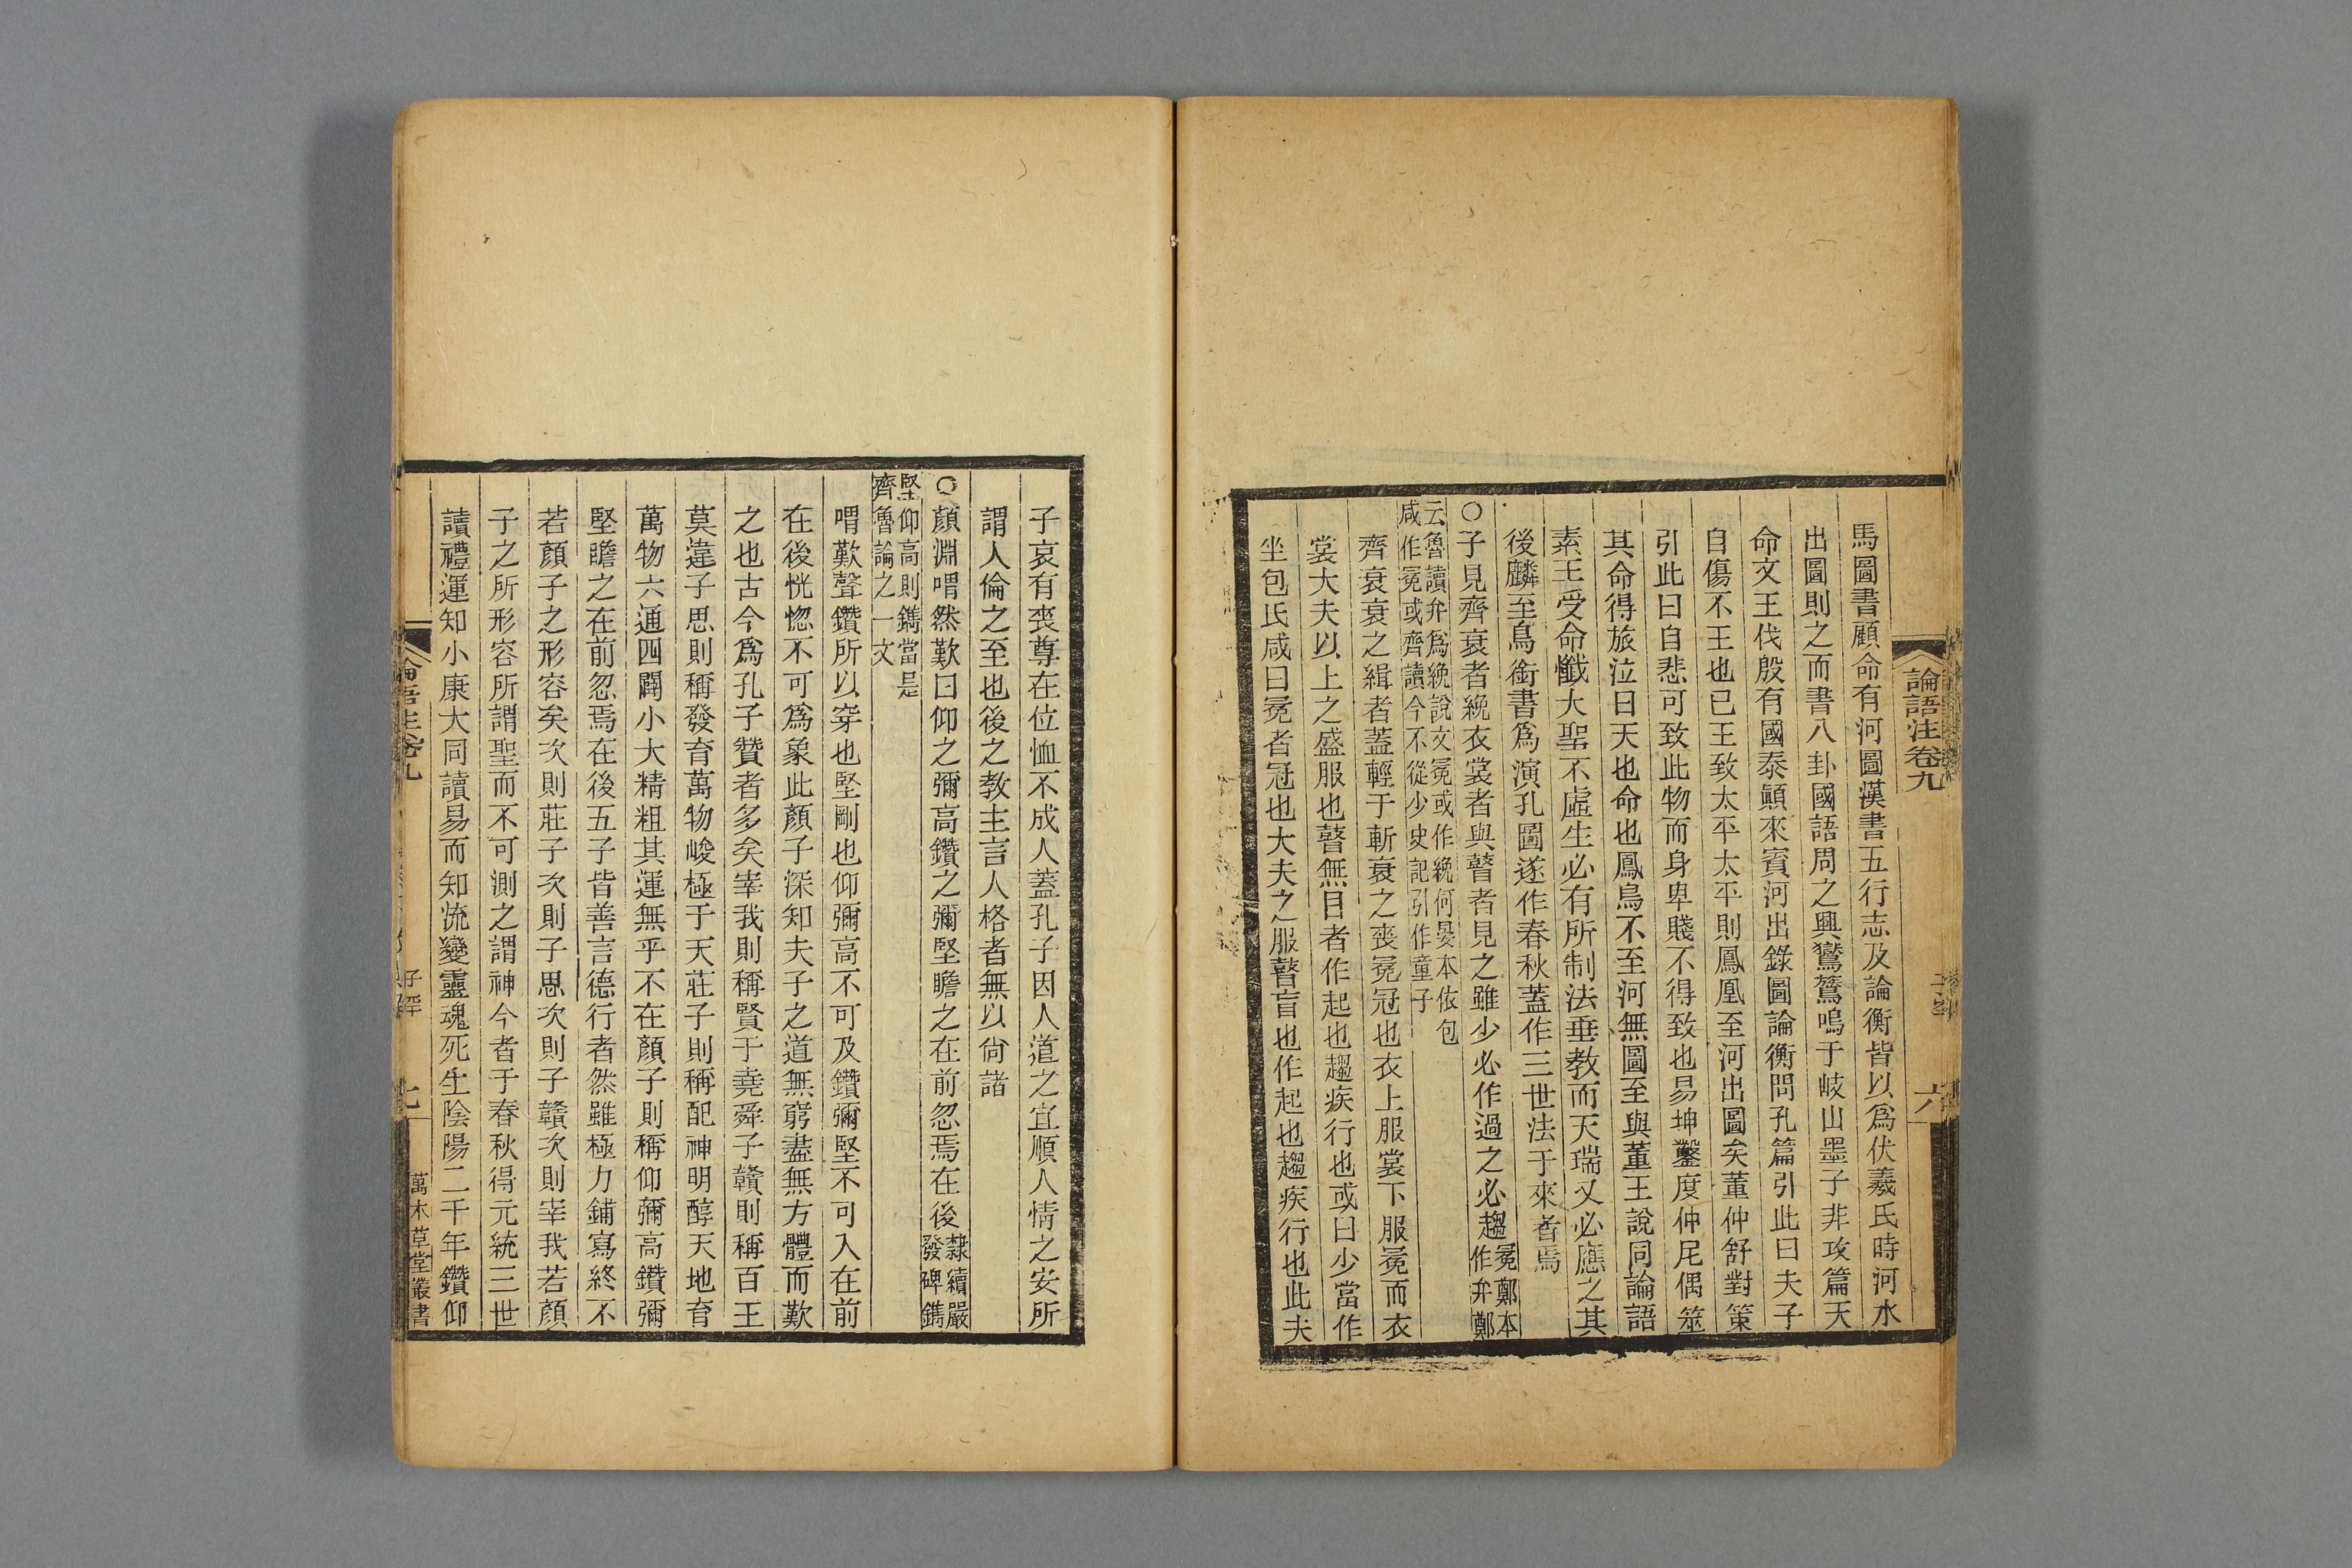 論語注卷九
六
馬圖書顧命有河圖漢書五行志及論衡皆以爲伏羲氏時河水
出圖則之而書八卦國語周之興鸑鷟鳴于岐山墨子非攻篇天
命文王伐殷有國泰顚來賓河出錄圖論衡問孔篇引此曰夫子
自傷不王也已王致太平太平則鳳凰至河出圖矣董仲舒對策
引此曰自悲可致此物而身卑賤不得致也易坤鑿度仲尼偶筮
其命得旅泣曰天也命也鳳鳥不至河無圖至與董王說同論語
素王受命懺大聖不虛生必有所制法垂教而天瑞又必應之其
後麟至鳥銜書爲演孔圖遂作春秋蓋作三世法于來者焉
〇子見齊衰者絻衣裳者與瞽者見之雖少必作過之必趨冕鄭本作弁鄭
云魯讀弁爲絻說文冕或作絻何晏本依包
咸作冕或齊讀今不從少史記引作童子
齊衰衰之緝者蓋輕于斬衰之喪冕冠也衣上服裳下服冕而衣
裳大夫以上之盛服也瞽無目者作起也趨疾行也或曰少當作
坐包氏咸曰冕者冠也大夫之服瞽盲也作起也趨疾行也此夫
子哀有喪尊在位恤不成人蓋孔子因人道之宜順人情之安所
謂人倫之至也後之教主言人格者無以尙諸
〇顏淵喟然歎曰仰之彌高鑽之彌堅瞻之在前忽焉在後隸續嚴發碑鐫
堅仰高則鐫當是
齊魯論之一文
喟歎聲鑽所以穿也堅剛也仰彌高不可及鑽彌堅不可入在前
在後恍惚不可爲象此顏子深知夫子之道無窮盡無方體而歎
之也古今爲孔子贊者多矣宰我則稱賢于堯舜子贛則稱百王
莫違子思則稱發育萬物峻極于天莊子則稱配神明醇天地育
萬物六通四闢小大精粗其運無乎不在顏子則稱仰彌高鑽彌
堅瞻之在前忽焉在後五子皆善言德行者然雖極力鋪寫終不
若顏子之形容矣次則莊子次則子思次則子贛次則宰我若顏
子之所形容所謂聖而不可測之謂神今者于春秋得元統三世
讀禮運知小康大同讀易而知流變靈魂死生陰陽二千年鑽仰
論語注卷九
七
萬木草堂叢書